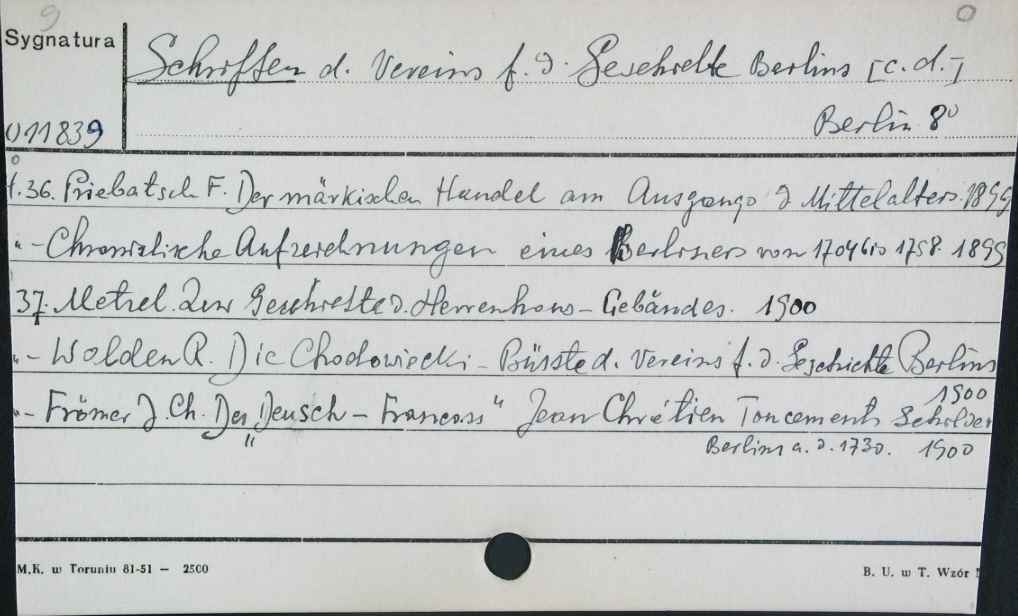 9 0
Sygnatura
Schriften d. Vereins f. d. Geschichte Berlins [c.d.]
011839
Berlin 8°
t.36. Priebatsch F. Der märkischen Handel am Ausgange d Mittelalters. 1899
"- Chronistische Aufzeichnungen eines Berliners von 1704 bis 1758. 1899
37. Metzel. Zur Geschichte d. Herrenhaus-Gebäudes. 1900
"- Wolden R. Die Chodowiecki-Büsste d. Vereins f. d. Geschichte Berlins
1900
"- Frömer J. Ch. Der "Deusch-Francoss" Jean Chrétien Toncement Schilder
Berlins a. d. 1730. 1900
M.K. w Toruniu 81-51 — 2500
B. U. w T. Wzór